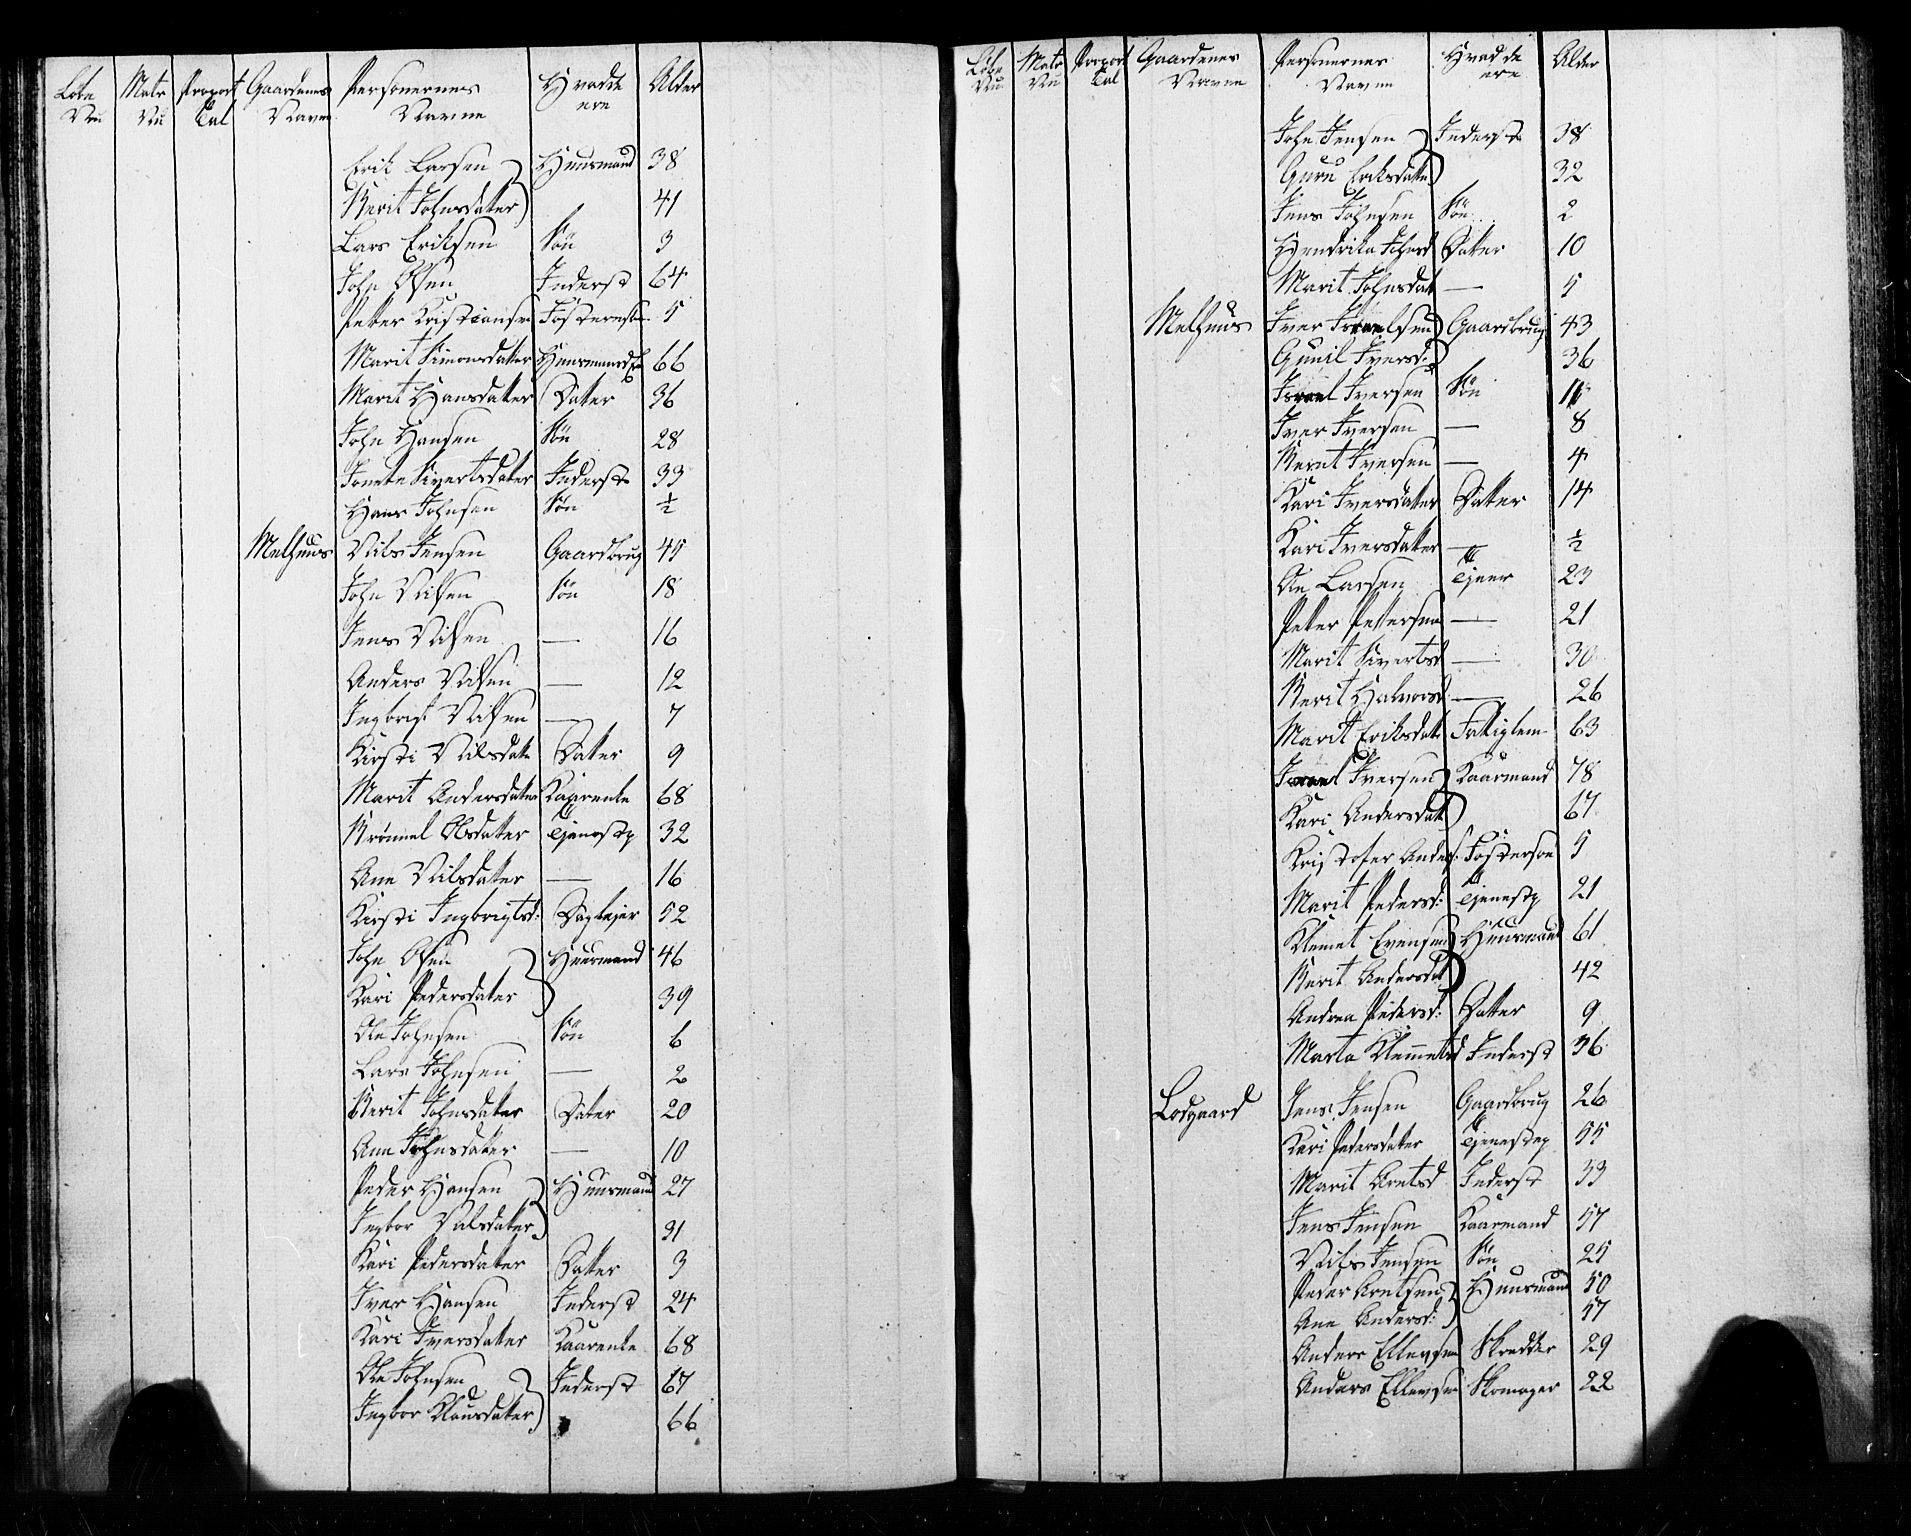 Løbe Nu Matr Nu Proport Tal Gaardenes Navne Personernes Navne Hvad de ere Alder
Erik Larsen Huusmand 38
Berit Johnsdatter 41
Lars Eriksen Søn 3
John Olsen Inderst 64
Petter Kristiansen Fostersøn 5
Marit Simonsdatter 66
Marit Hansdatter Datter 36
John Hansen Søn 28
Jonete Sivertsdater Inderst 33
Hans Johnsen Søn ½
Melhuus Nils Jensen Gaardbrug 45
John Nilsen Søn 18
Jens Nilsen — 16
Anders Nilsen — 12
Ingbrigt Nilsen — 7
Kirsti Nilsdatter Datter 9
Marit Andersdater Kaarenke 68
Brønnel Olsdatter Tjenestp 32
Ane Nilsdatter — 16
Kirsti Ingbrigtsd: Daglejer 52
John Olsen Huusmand 46
Kari Pedersdatter 39
Ole Johnsen Søn 6
Lars Johnsen — 2
Berit Johnsdater Dater 20
Ane Johnsdatter — 10
Peder Hansen Huusmand 27
Ingbor Nilsdater 31
Kari Pedersdatter Datter 3
Iver Hansen Inderst 24
Kari Iversdatter Kaarenke 68
Ole Johnsen Inderst 67
Ingbor Klausdater 66
Løbe Nu Matr Nu Proport Tal Gaardenes Navne Personernes Navne Hvad de ere Alder
John Jensen Inderst 38
Guru Eriksdatter 32
Jens Johnsen Søn 2
Hendrika Johnsd Datter 10
Marit Johnsdat — 5
Melhuus Iver Israelsen Gaardbrug 43
Gunil Iversd: 36
Israel Iversen Søn 11
Iver Iversen — 8
Bernt Iversen — 4
Kari Iversdatter Datter 14
Kari Iversdatter — ½
Ole Larsen Tjener 23
Petter Pettersen — 21
Marit Sivertsd — 30
Berit Halvorsd — 26
Marit Eriksdatt Fattiglem 63
Israel Iversen Kaarmand 78
Kari Andersdat 67
Kristofer Anders. Fostersøn 5
Marit Pedersd: Tjenestp 21
Klemet Evensen Huusmand 61
Berit Andersdat 42
Andrea Pedersd: Datter 9
Marta Klemmetsd Inderst 36
Lodgaard Jens Jensen Gaardbrug 26
Kari Pedersdatter Tjenestep 55
Marit Arntsd Inderst 33
Jens Jensen Kaarmand 57
Nils Jensen Søn 25
Peder Arntsen Huusmand 50
Ane Andersd: 57
Anders Ellevsen Skredder 29
Anders Ellevsen Skomager 22